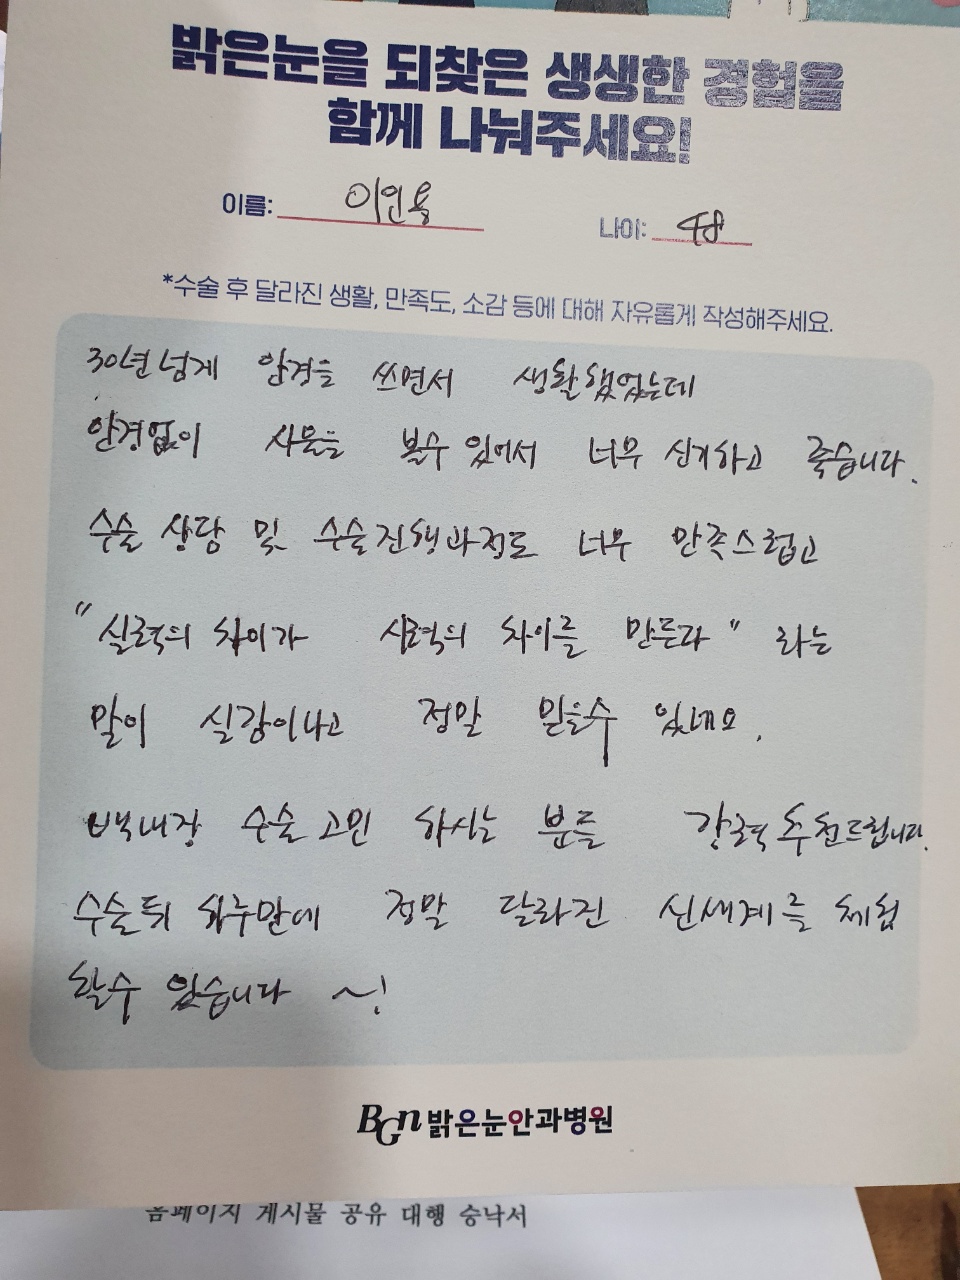 밝은눈을 되찾은 생생한 경험을
함께 나눠주세요!
이름: 이인용 나이: 48
*수술 후 달라진 생활, 만족도, 소감 등에 대해 자유롭게 작성해주세요.
30년넘게 안경을 쓰면서 생활했었는데
안경없이 사물을 볼수 있어서 너무 신기하고 좋습니다.
수술 상담 및 수술진행과정도 너무 만족스럽고
"실력의 차이가 시력의 차이를 만든다" 라는
말이 실감이나고 정말 믿을수 있네요.
백내장 수술 고민 하시는 분들 강력 추천드립니다.
수술뒤 하루만에 정말 달라진 신세계를 체험
할수 있습니다 ~!
BGn 밝은눈안과병원
홈페이지 게시물 공유 대행 승낙서